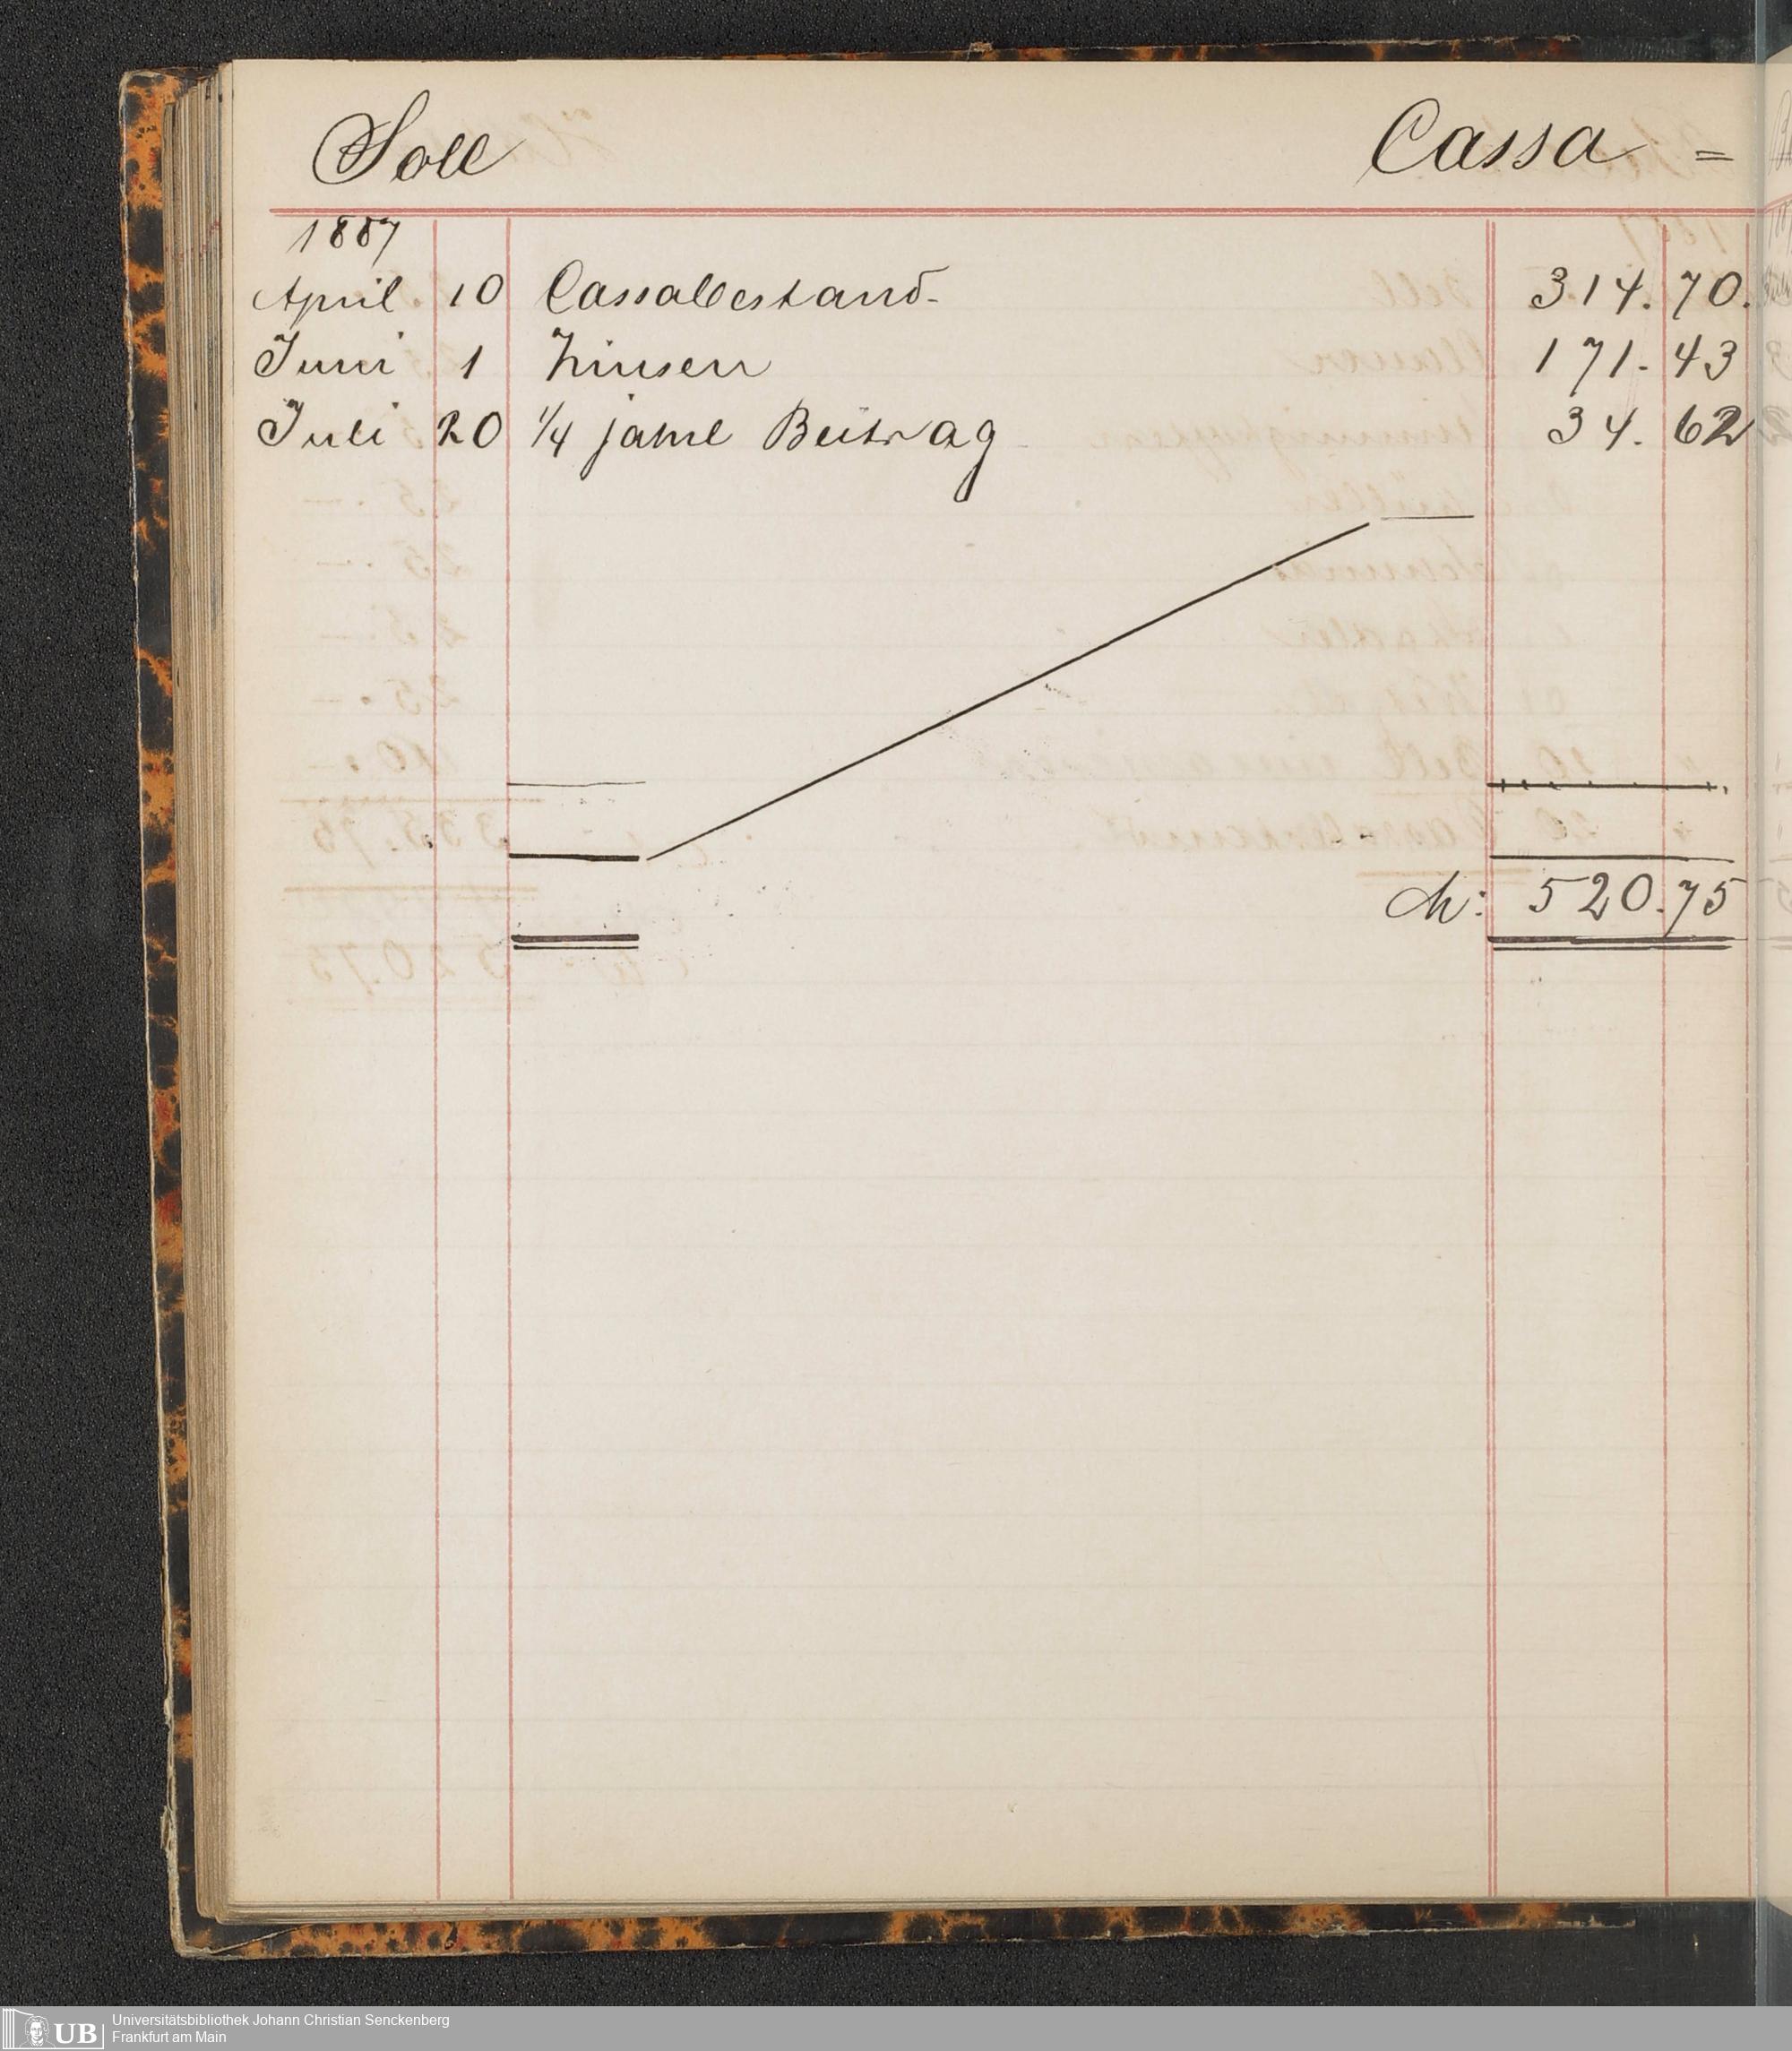 Soll Cassa =
1887
April 10 Cassabestand- 314. 70.
Juni 1 Zinsen 171. 43
Juli 20 1/4 jahrl Beitrag 34. 62
M: 520.75
UB Universitätsbibliothek Johann Christian Senckenberg
Frankfurt am Main